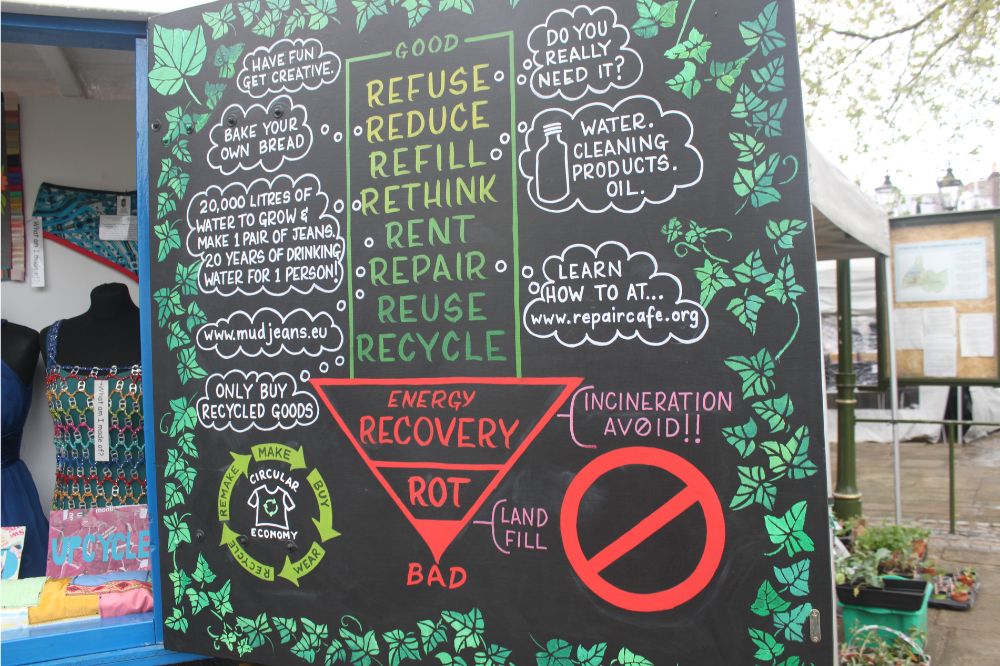 GOOD
HAVE FUN
GET CREATIVE.
DO YOU
REALLY
NEED IT?
REFUSE
REDUCE
REFILL
RETHINK
RENT
REPAIR
REUSE
RECYCLE
BAKE YOUR
OWN BREAD
WATER.
CLEANING
PRODUCTS.
OIL.
20,000 LITRES OF
WATER TO GROW &
MAKE 1 PAIR OF JEANS.
20 YEARS OF DRINKING
WATER FOR 1 PERSON!
LEARN
HOW TO AT...
www.repaircafe.org
www.mudjeans.eu
ONLY BUY
RECYCLED GOODS
ENERGY
RECOVERY
ROT
BAD
INCINERATION
AVOID!!
LAND
FILL
CIRCULAR
ECONOMY
MAKE
BUY
WEAR
RECYCLE
REMAKE
What am I made of?
What am I made of?
UPCYCLE